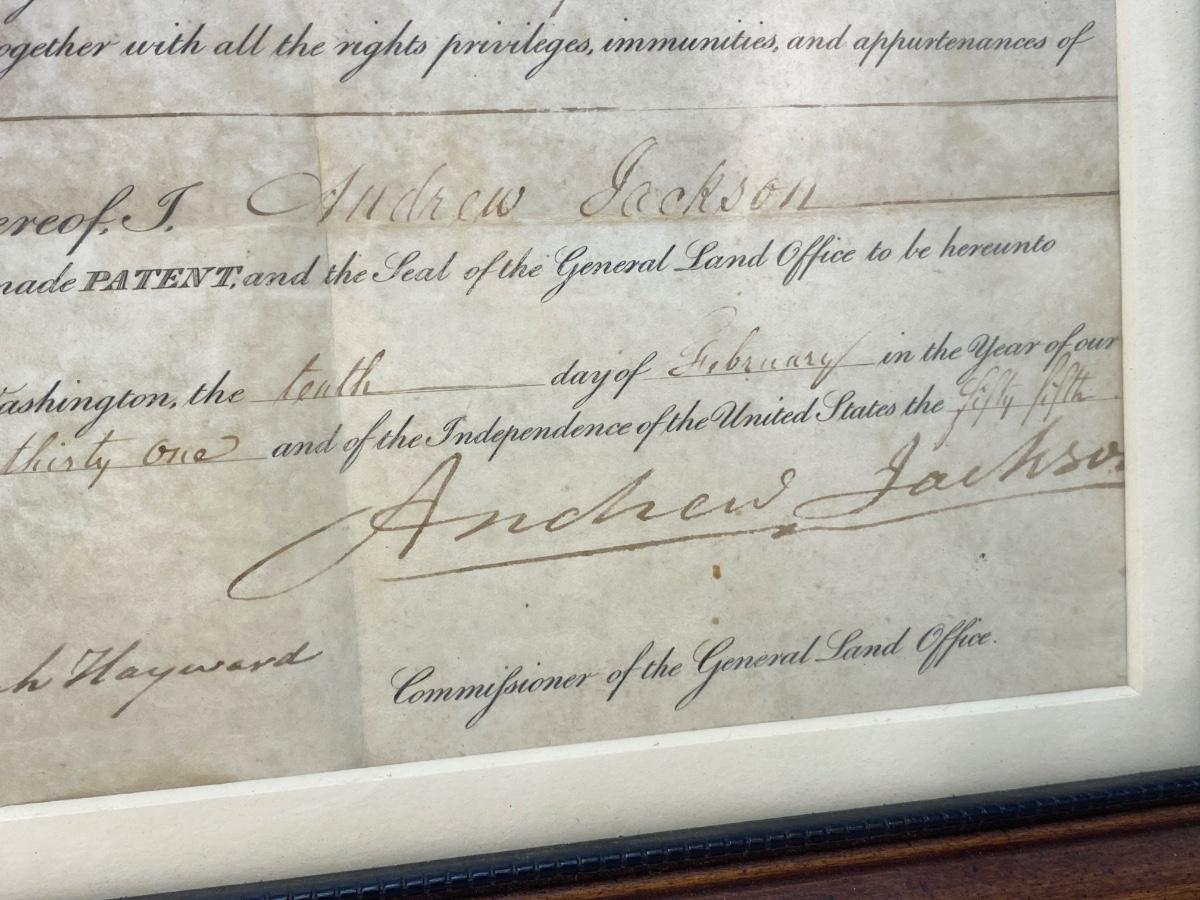 ogether with all the rights privileges, immunities, and appurtenances of
ereof, I, Andrew Jackson
made PATENT, and the Seal of the General Land Office to be hereunto
Washington, the tenth day of February in the Year of our
thirty one and of the Independence of the United States the fifty fifth
Andrew Jackson
h Hayward Commiſsioner of the General Land Office.